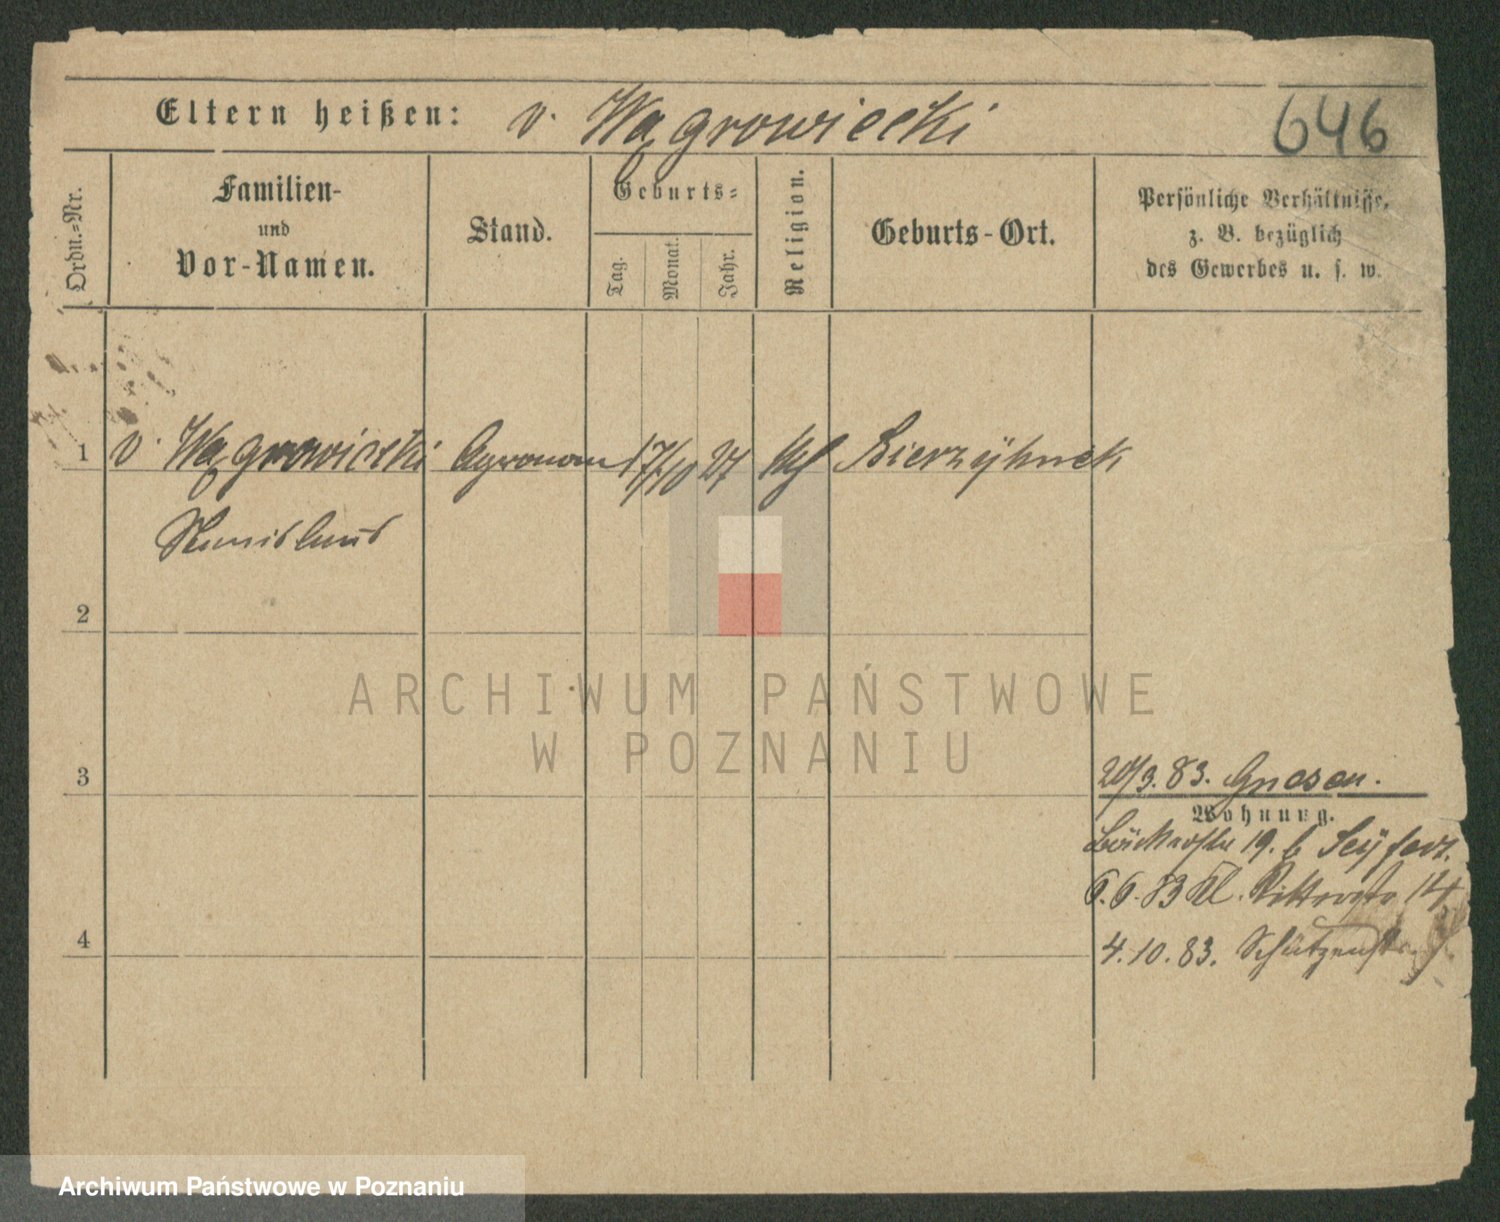 Eltern heißen: v. Wągrowiecki 646
Ordn.=Nr.
Familien-
und
Vor-Namen.
Stand.
Geburts=
Tag. Monat. Jahr.
Religion.
Geburts-Ort.
Persönliche Verhältnisse,
z. B. bezüglich
des Gewerbes u. s. w.
1 v. Wągrowiecki Agronom 17/10 27
Stanislaus
2
3
4
20/3. 83. Gnesen.
Wohnung.
19. b Seyfert.
6. 6. 83 Kl. Ritterstr 14
4. 10. 83. Schützenstr
ARCHIWUM PAŃSTWOWE
W POZNANIU
Archiwum Państwowe w Poznaniu